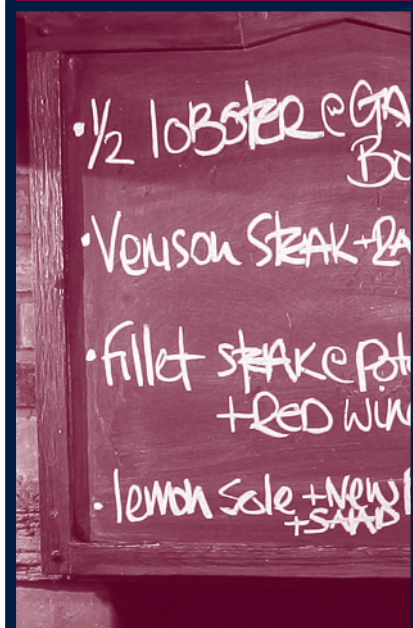 ·1/2 LOBSTER @ GA
BO
·Venison STEAK + RA
·Fillet STEAK @ Pot
+ RED WIN
·lemon Sole + New
+ SALAD